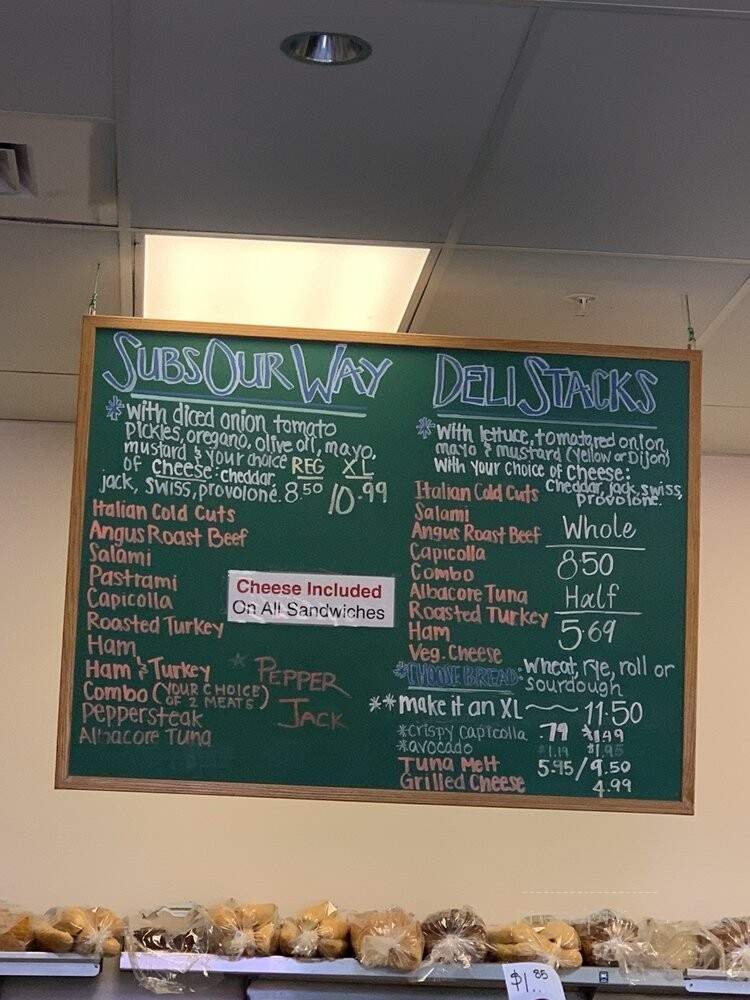 SUBS OUR WAY
* with diced onion tomato
pickles, oregano, olive oil, mayo,
mustard & your choice
of cheese: cheddar,
jack, swiss, provolone.
REG XL
8.50 10.99
Italian Cold Cuts
Angus Roast Beef
Salami
Pastrami
Capicolla
Roasted Turkey
Ham
Ham & Turkey
Combo (YOUR CHOICE OF 2 MEATS)
Peppersteak
Albacore Tuna
Cheese Included
On All Sandwiches
* PEPPER
JACK
DELI STACKS
* with lettuce, tomato, red onion,
mayo & mustard (yellow or Dijon)
with your choice of cheese:
cheddar, jack, swiss,
provolone.
Italian Cold Cuts
Salami
Angus Roast Beef
Capicolla
Combo
Albacore Tuna
Roasted Turkey
Ham
Veg. Cheese
Whole
8.50
Half
5.69
* CHOOSE BREAD: wheat, rye, roll or
sourdough
** make it an XL ~ 11.50
* crispy capicolla .79 $1.49
* avocado $1.19 $1.95
Tuna Melt 5.95/9.50
Grilled Cheese 4.99
$1.85